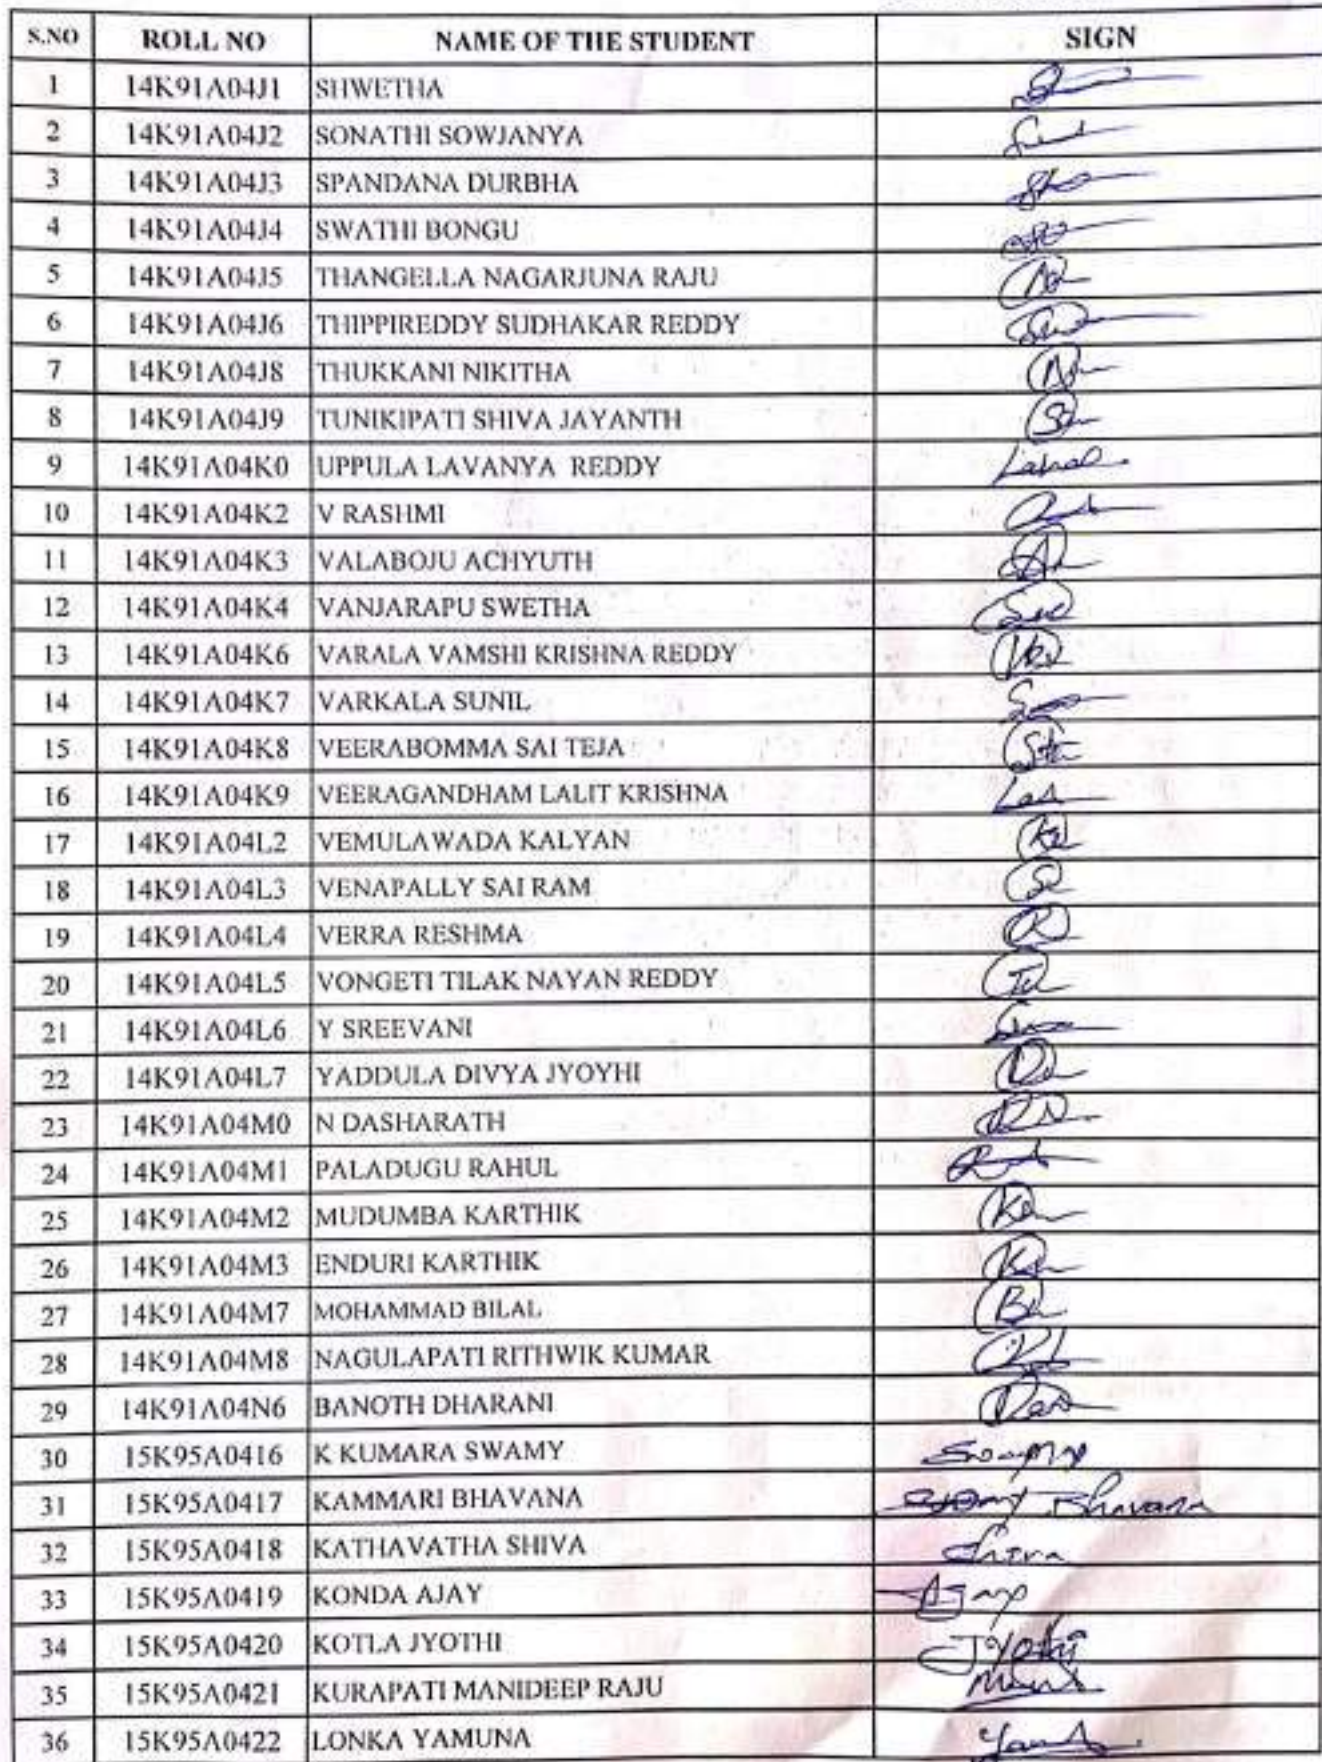 S.NO ROLL NO NAME OF THE STUDENT SIGN
1 14K91A04J1 SHWETHA
2 14K91A04J2 SONATHI SOWJANYA
3 14K91A04J3 SPANDANA DURBHA
4 14K91A04J4 SWATHI BONGU
5 14K91A04J5 THANGELLA NAGARJUNA RAJU
6 14K91A04J6 THIPPIREDDY SUDHAKAR REDDY
7 14K91A04J8 THUKKANI NIKITHA
8 14K91A04J9 TUNIKIPATI SHIVA JAYANTH
9 14K91A04K0 UPPULA LAVANYA REDDY
10 14K91A04K2 V RASHMI
11 14K91A04K3 VALABOJU ACHYUTH
12 14K91A04K4 VANJARAPU SWETHA
13 14K91A04K6 VARALA VAMSHI KRISHNA REDDY
14 14K91A04K7 VARKALA SUNIL
15 14K91A04K8 VEERABOMMA SAI TEJA
16 14K91A04K9 VEERAGANDHAM LALIT KRISHNA
17 14K91A04L2 VEMULAWADA KALYAN
18 14K91A04L3 VENAPALLY SAI RAM
19 14K91A04L4 VERRA RESHMA
20 14K91A04L5 VONGETI TILAK NAYAN REDDY
21 14K91A04L6 Y SREEVANI
22 14K91A04L7 YADDULA DIVYA JYOYHI
23 14K91A04M0 N DASHARATH
24 14K91A04M1 PALADUGU RAHUL
25 14K91A04M2 MUDUMBA KARTHIK
26 14K91A04M3 ENDURI KARTHIK
27 14K91A04M7 MOHAMMAD BILAL
28 14K91A04M8 NAGULAPATI RITHWIK KUMAR
29 14K91A04N6 BANOTH DHARANI
30 15K95A0416 K KUMARA SWAMY
31 15K95A0417 KAMMARI BHAVANA Bhavana
32 15K95A0418 KATHAVATHA SHIVA Shiva
33 15K95A0419 KONDA AJAY Ajay
34 15K95A0420 KOTLA JYOTHI Jyothi
35 15K95A0421 KURAPATI MANIDEEP RAJU
36 15K95A0422 LONKA YAMUNA